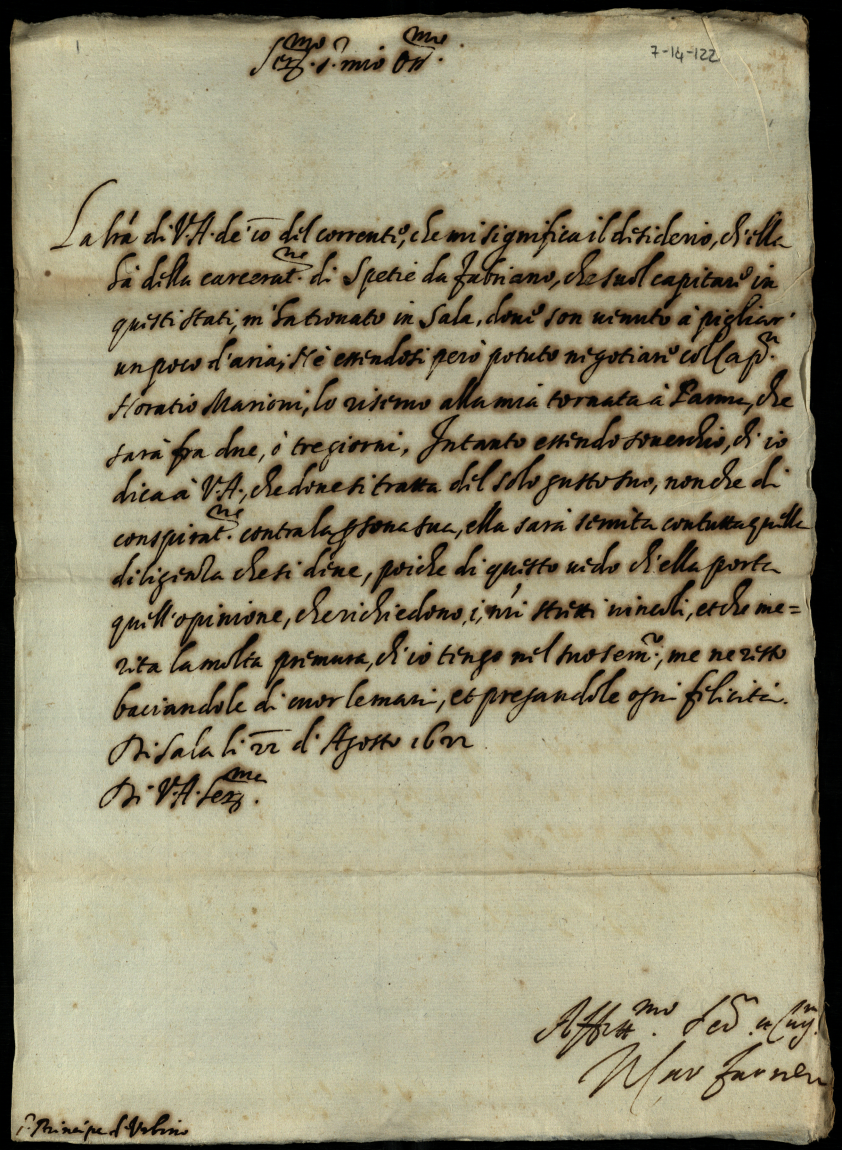 1
7-14-122
Ser.mo S.r mio Oss.mo
La lr̃a di V.A. de' 10 del corrente, che mi significa il desiderio, ch'ella
hà della carcerat.ne di Spetie da Fabriano, che suol capitare in
questi stati, m'hà trovato in Sala, dove son venuto à pigliar'
un poco d'aria; Nè essendosi però potuto negotiare col Cap.n
Horatio Marioni, lo riserno alla mia tornata à Parma, che
sarà frà due, ò tre giorni. Intanto essendo soverchio, ch'io
dica à V.A., che dove si tratta del solo gusto suo, non che di
conspirat.ne contra la p̱sona sua, ella sarà servita con tutta quella
diligenza che si deve, poiche di questo vedo ch'ella porta
quell'opinione, che richiedono i nr̃i stretti vincoli, et che me=
rita la molta premura, ch'io tengo nel suo serv.o, me ne resto
baciandole di cuor le mani, et pregandole ogni felicità.
Di Sala li 22 d'Agosto 1622
Di V.A. Ser.ma
Affett.mo Ser.r et Cug.n
S.r Principe d'Urbino